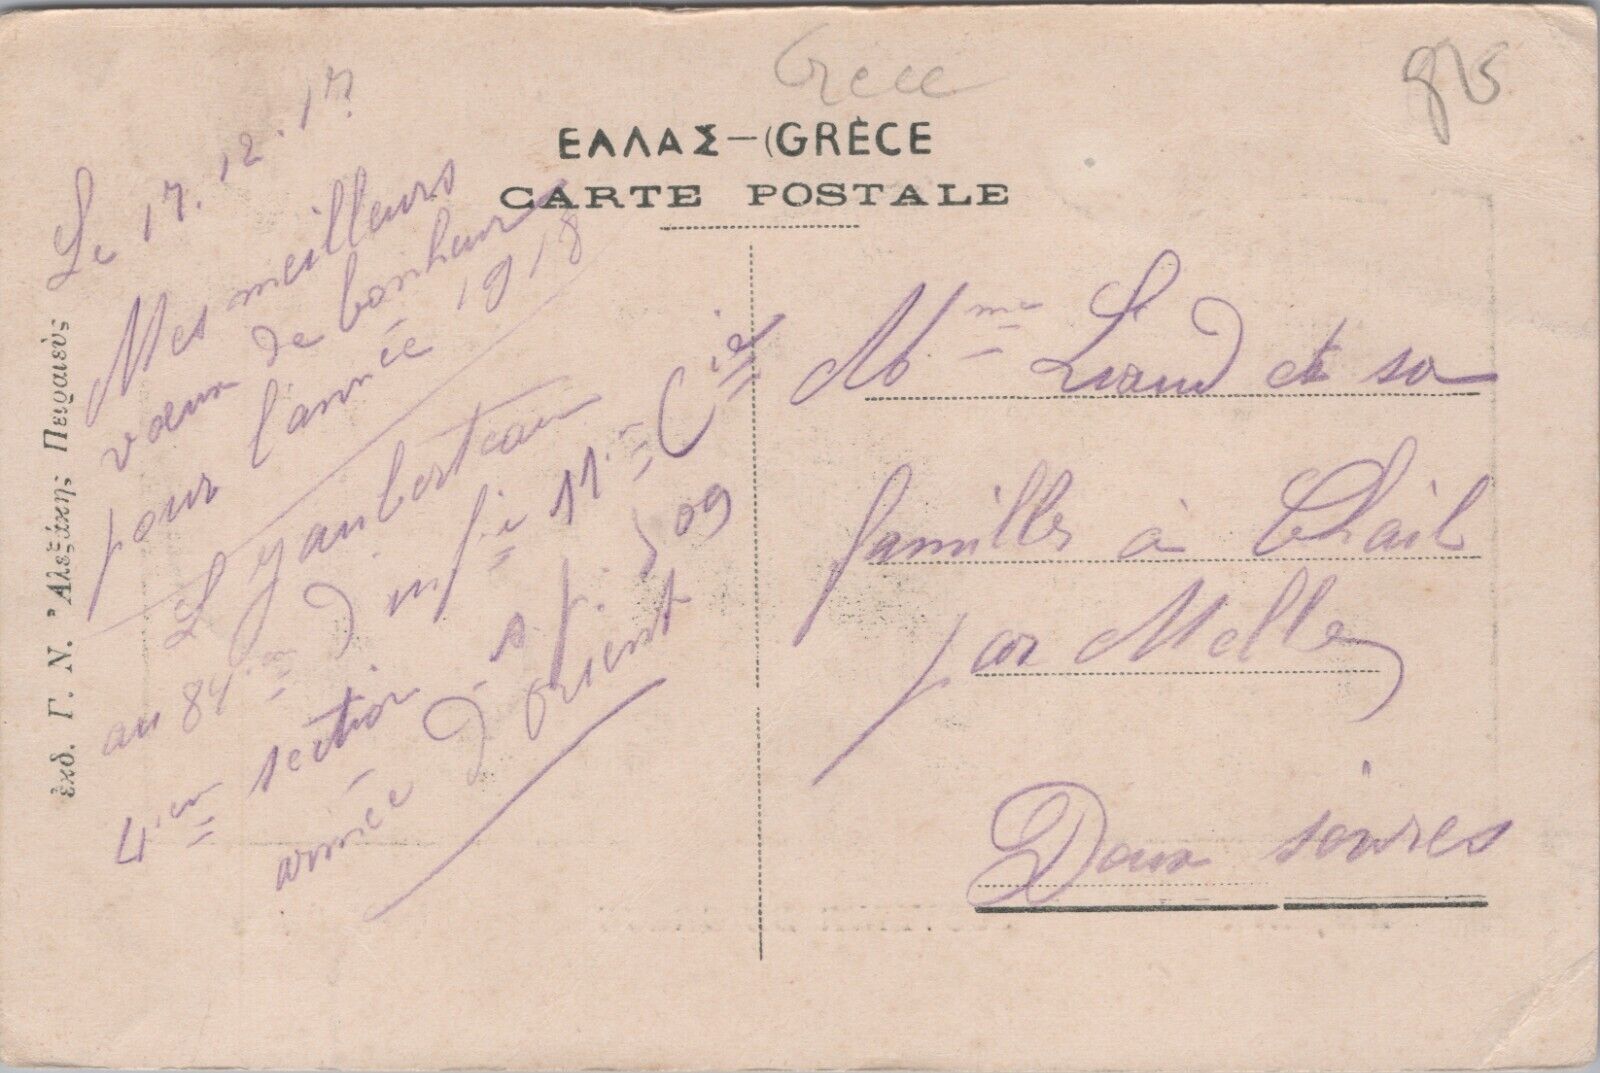 Grece
ΕΛΛΑΣ – (GRÈCE
CARTE POSTALE
Le 17.12.17
Mes meilleurs
vœux de bonheur
pour l'année 1918
L Jauberteau
au 84ème d'infie 11me Cie
4ème section s.p. 509
armée d'orient
Mme et sa
famille à Chail
par Melle
Deux sèvres
ἐκδ. Γ. Ν. Ἀλεξάκης Πειραιεὺς